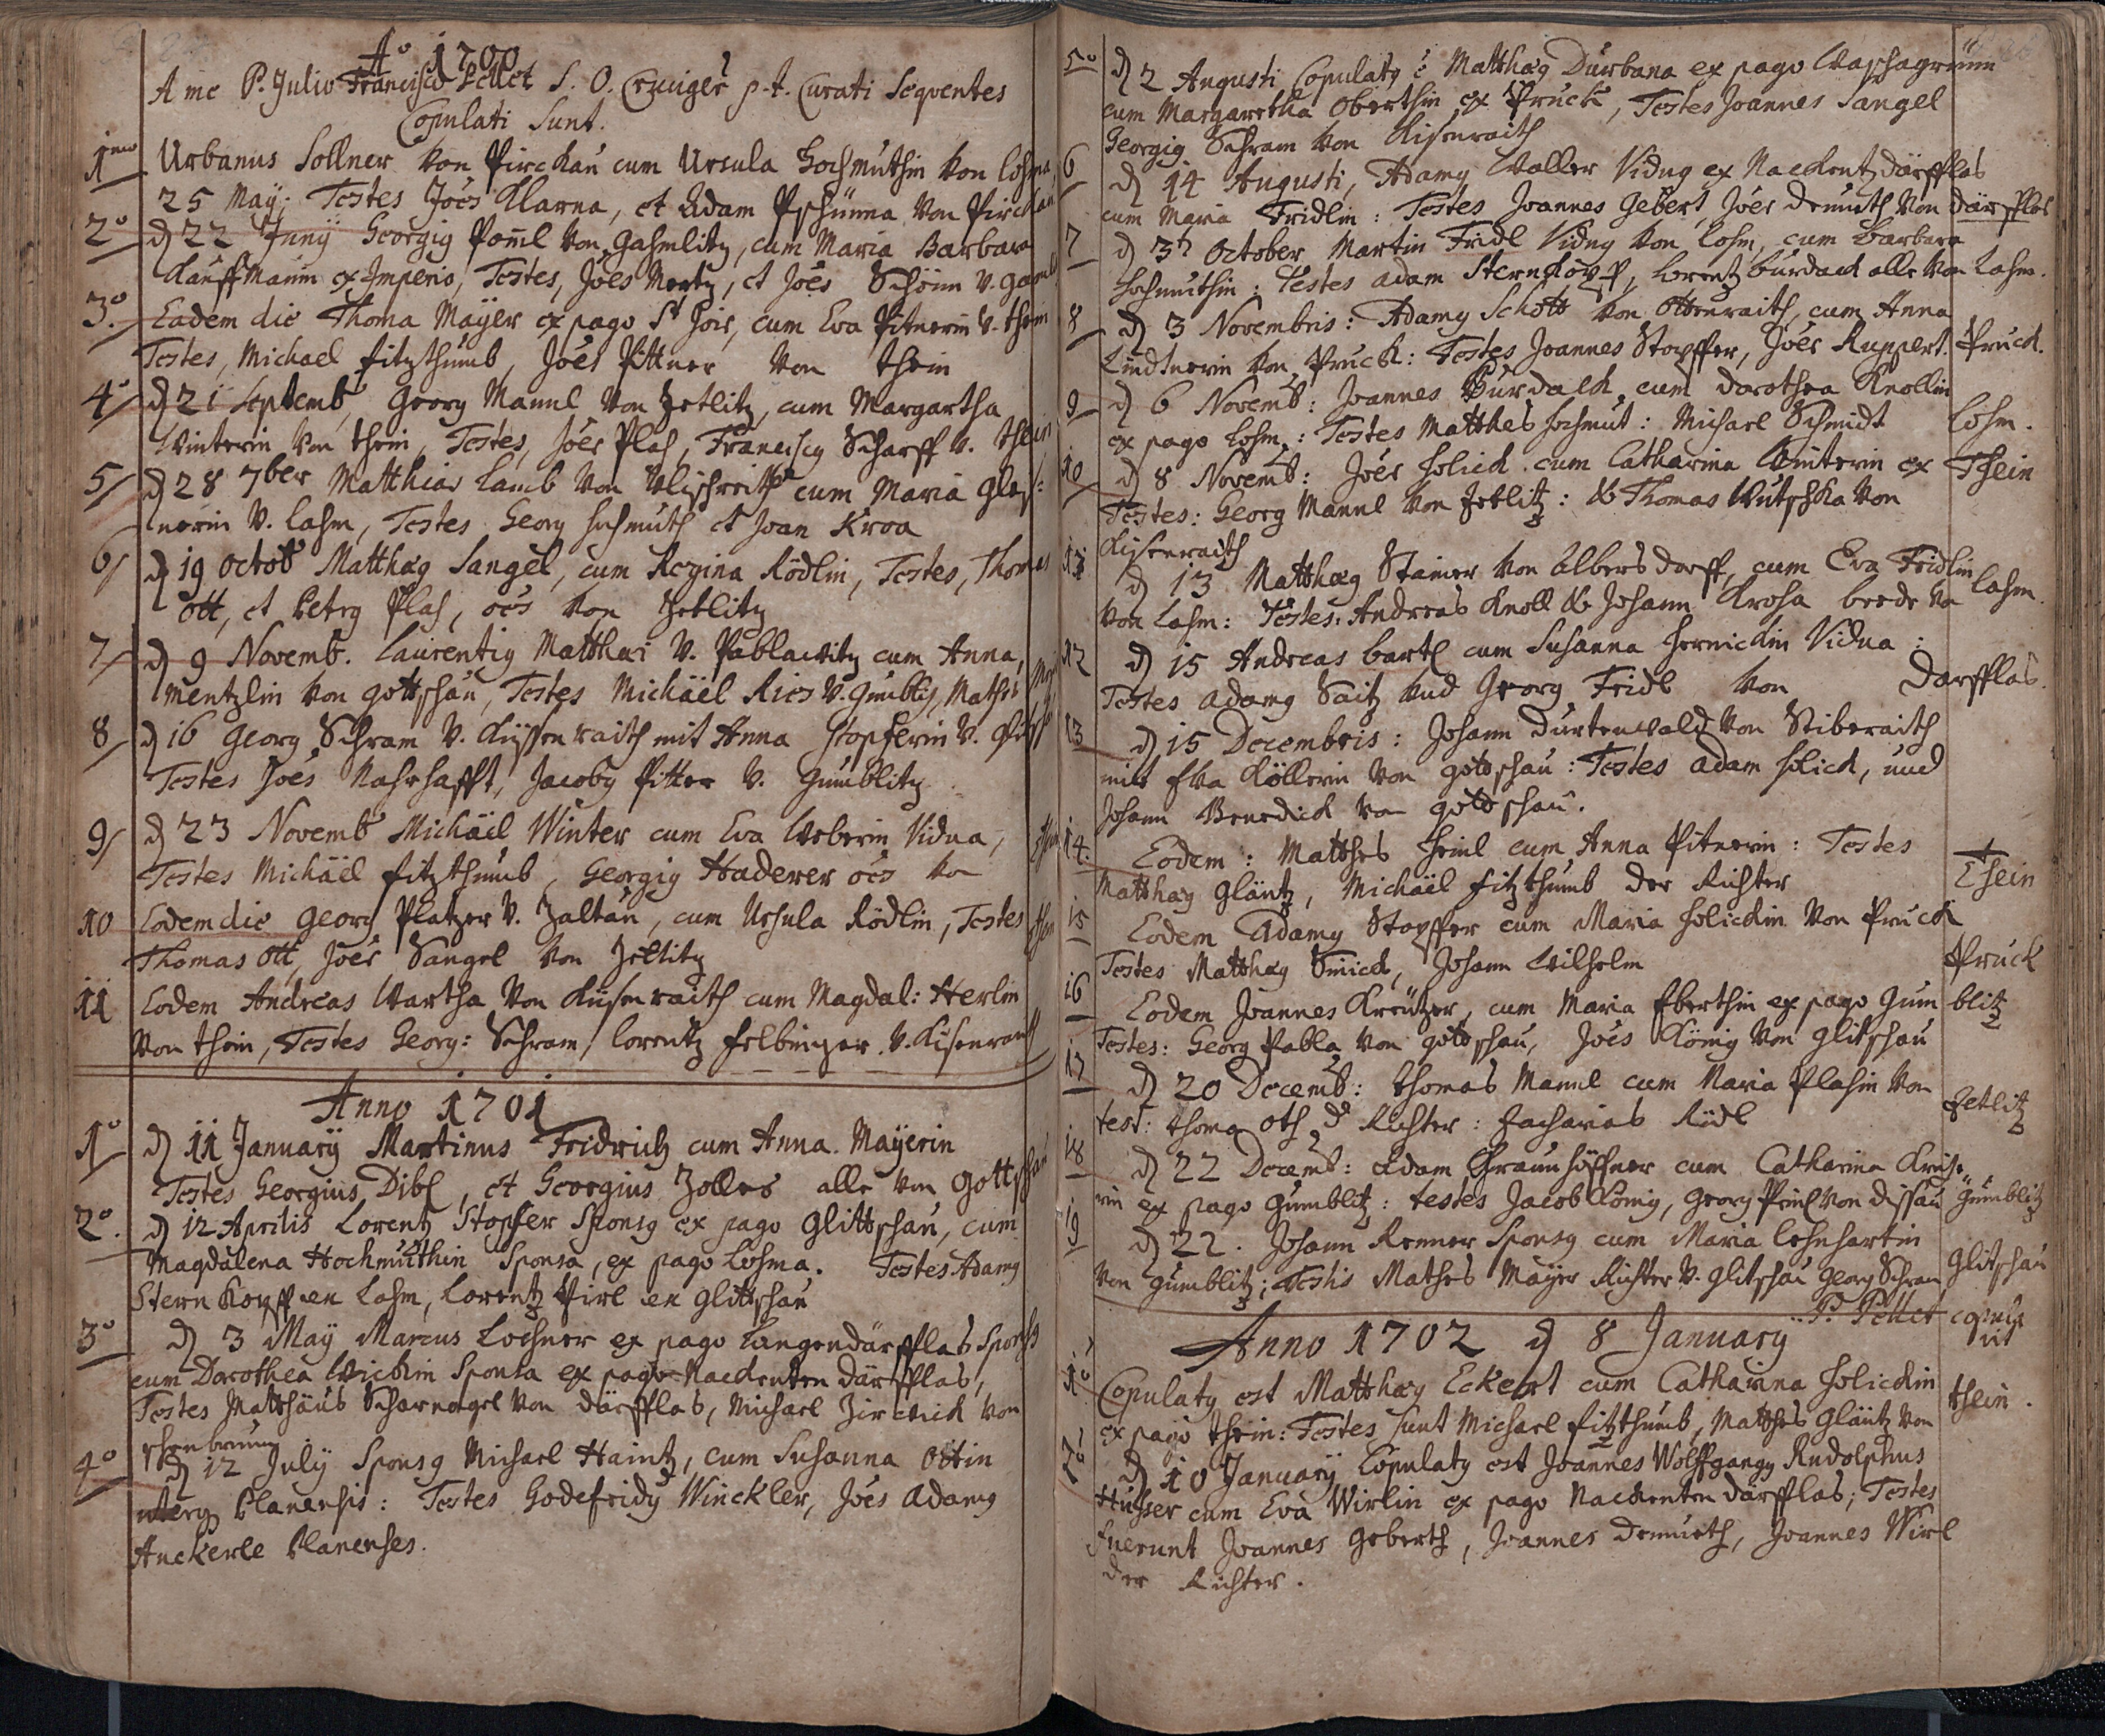 Aº 1700
A me P. Julio Francisco Pellet S. O. Cruciger p. t. Curati Sequentes
Copulati Sunt.
1mo Urbanus Sollner von Pirckau cum Ursula Hochmuthin von Lohma
25 Maÿ. Testes Joēs Klarna, et Adam Pschünna von Pirckau
2º d 22 Junÿ Georgig Pom̄l von Gahmlitz, cum Maria Barbara
Kauffmanin ex Imperio, Testes, Joēs Mertz, et Joēs Schönn v.
3º. Eadem die Thoma Maÿer ex pago St Jois, cum Eva Pitnerin v. thein
Testes, Michael fitzthumb, Joēs Pittner von thein
4º d 21 Septemb Georg Mannl von Zetlitz, cum Margartha
Winterin von thein, Testes, Joēs Plass, Franciscg Scharff v. thein
5 d 28 7ber Matthias Lamb von Ulischreith cum Maria Glas:
nerin v. Lahm, Testes Georg Hochmuth et Joan Kroa
6 d 19 Octob Matthæg Sangel, cum Regina Rödlin, Testes, Thomas
Ott, et Petrg Plass, oēs von Zetlitz
7 d 9 Novemb. Laurentig Matthæi v. Pablawitz cum Anna,
Mentzlin von gottschau, Testes Michäel Ries v. Gumblitz, Mathes
8 d 16 Georg Schram v. Kissenraith mit Anna Stopferin v.
Testes Joēs Nahrhafft, Jacobg Pitter v. Gumblitz
9 d 23 Novemb Michäel Winter cum Eva Weberin Vidua,
Testes Michäel fitzthumb, Georgig Haderer oēs von
10 Eodem die Georg Platzer v. Zaltau, cum Ursula Rödlin, Testes
Thomas Ott, Joēs Sangel von Zettlitz
11 Eodem Andreas Wartha von Kisenraith cum Magdal: Herlin
von thein, Testes Georg: Schram, Lorentz felbinger v. Kisenraith
Anno 1701
1º d 11 Januarÿ Martinus Fridrich cum Anna Maÿerin
Testes Georgius Dibl, et Georgius Zolles alle von Gottschau
2º. d 12 Aprilis Lorentz Stopfer Sponsg ex pago Glittschau, cum
Magdalena Hochmuthin Sponsa, ex pago Lohma. Testes Adamg
Sternkopff en Lahm, Lorentz Pirl en Glittschau
3º d 3 Maÿ Marcus Lochner ex pago Langendärfflas Sponsg
cum Dorothea Wickin Sponsa ex pago Nackenten därfflas,
Testes Matthäus Scharnagel von därfflas, Michael Zirwick von
schenbrunn
4º d 12 Julÿ Sponsg Michael Haintz, cum Susanna Ottin
uterg Planensis: Testes Godefridg Winckler, Joēs Adamg
Anckerle Planenses.
5º d 2 Augusti Copulatg ē Matthæg Durbana ex pago Waschagrün
cum Margaretha Oberthin ex Pruck, Testes Joannes Sangel
Georgig Schram von Kisenraith
6 d 14 Augusti, Adamg Waller Vidug ex Nackent därfflas
cum Maria Fridlin: Testes Joannes Gebert, Joēs Demuth von därfflas
7 d 3t October Martin Fridl Vidug von Lohm, cum Barbara
Hochmuthin: Testes Adam Sternkopf, Lorentz Burdack alle von Lahm.
8 d 3 Novembris: Adamg Schott von Ottenraith, cum Anna
Lindtnerin von Pruck: Testes Joannes Stopffer, Joēs Ruppert. Pruck.
9 d 6 Novemb: Joannes Burdack, cum Dorothea Knollin
ex pago Lohm: Testes Matthes Hochmut: Michael Schmidt Lohm.
10 d 8 Novemb: Joēs Holick cum Catharina Winterin ex Thein
Testes: Georg Mannl von Zetlitz: & Thomas Wutschka von
Kisenraith
11 d 13 Matthæg Stainer von Albersdorff, cum Eva Fridlin Lahm.
von Lahm: Testes: Andreas Knoll & Johann Kroha beede von
12 d 15 Andreas Bartl cum Susanna Hernickin Vidua:
Testes Adamg Saitz und Georg Fridl von Darfflas.
13 d 15 Decembris: Johann Durtenwald von Stiberaith
mit Eva Köllerin von Gottschau: Testes Adam Holick, und
Johann Benedick von Gottschau.
14. Eodem: Matthes Heinl cum Anna Pitnerin: Testes Thein
Matthæg Gläntz, Michäel fitzthumb der Richter
15 Eodem Adamg Stopffer cum Maria Holickin von Pruck
Testes Matthæg Smick, Johann Wilhelm Pruck
16 Eodem Joannes Kreutzer, cum Maria Eberthin ex pago Gumblitz
Testes: Georg Pabla von Gottschau, Joēs König von Glitschau
17 d 20 Decemb: Thomas Mannl cum Maria Plassin von Zetlitz
test: Thoma Oth d Richter: Zacharias Ridl
18 d 22 Decemb: Adam Braunhöffner cum Catharina
rin ex pago Gumblitz: testes Jacob König, Georg von Dissau Gumblitz
19 d 22. Johann Renner Sponsg cum Maria Lehnhartin
von Gumblitz; Testis Mathes Mayer Richter v. Glitschau Georg Schram Glitschau
P. Pellet copulavit
Anno 1702 d 8 Januarÿ
1º Copulatg est Matthæg Eckert cum Catharina Holickin thein.
ex pago thein: Testes sunt Michael fitzthumb, Matthes Gläntz von
2º d 10 Januarÿ Copulatg est Joannes Wolffgangg Rudolphus
Husser cum Eva Wirlin ex pago Nackenten därfflas; Testes
fuerunt Joannes Geberth, Joannes Demuth, Joannes Wirl
der Richter.